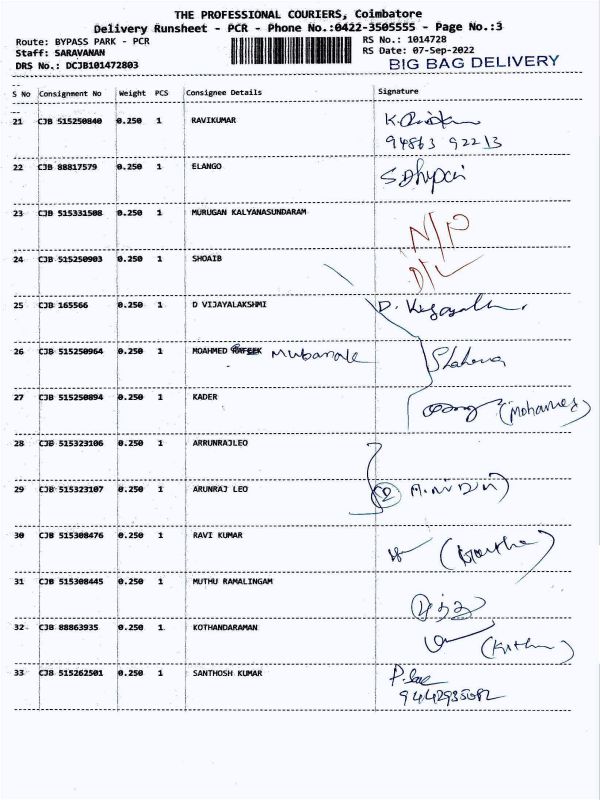 THE PROFESSIONAL COURIERS, Coimbatore
Delivery Runsheet - PCR - Phone No.:0422-3505555 - Page No.:3
Route: BYPASS PARK - PCR
RS No.: 1014728
Staff: SARAVANAN
RS Date: 07-Sep-2022
DRS No.: DCJB101472803
BIG BAG DELIVERY
S No Consignment No Weight PCS Consignee Details Signature
21 CJB 515250840 0.250 1 RAVIKUMAR
94863 92213
22 CJB 88817579 0.250 1 ELANGO
23 CJB 515331508 0.250 1 MURUGAN KALYANASUNDARAM N/P
24 CJB 515250903 0.250 1 SHOAIB D/L
25 CJB 165566 0.250 1 D VIJAYALAKSHMI
26 CJB 515250964 0.250 1 MOAHMED
27 CJB 515250894 0.250 1 KADER (Mohamed)
28 CJB 515323106 0.250 1 ARRUNRAJLEO
29 CJB 515323107 0.250 1 ARUNRAJ LEO 2
30 CJB 515308476 0.250 1 RAVI KUMAR
31 CJB 515308445 0.250 1 MUTHU RAMALINGAM
32 CJB 88863935 0.250 1 KOTHANDARAMAN
33 CJB 515262501 0.250 1 SANTHOSH KUMAR
9442935082